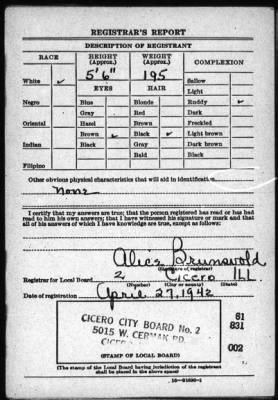 REGISTRAR'S REPORT
DESCRIPTION OF REGISTRANT
RACE HEIGHT (Approx.) WEIGHT (Approx.) COMPLEXION
White ✓ 5'6" 195 Sallow
Light
EYES HAIR
Negro Blue Blonde Ruddy ✓
Gray Red Dark
Oriental Hazel Brown Freckled
Brown ✓ Black ✓ Light brown
Indian Black Gray Dark brown
Bald Black
Filipino
Other obvious physical characteristics that will aid in identification
None
I certify that my answers are true; that the person registered has read or has had
read to him his own answers; that I have witnessed his signature or mark and that
all of his answers of which I have knowledge are true, except as follows:
Alice Brunswold
(Signature of registrar)
Registrar for Local Board 2 Cicero ILL.
(Number) (City or county) (State)
Date of registration April 27, 1942
CICERO CITY BOARD No. 2
5015 W. CERMAK RD.
61
831
002
(STAMP OF LOCAL BOARD)
(The stamp of the Local Board having jurisdiction of the registrant
shall be placed in the above space)